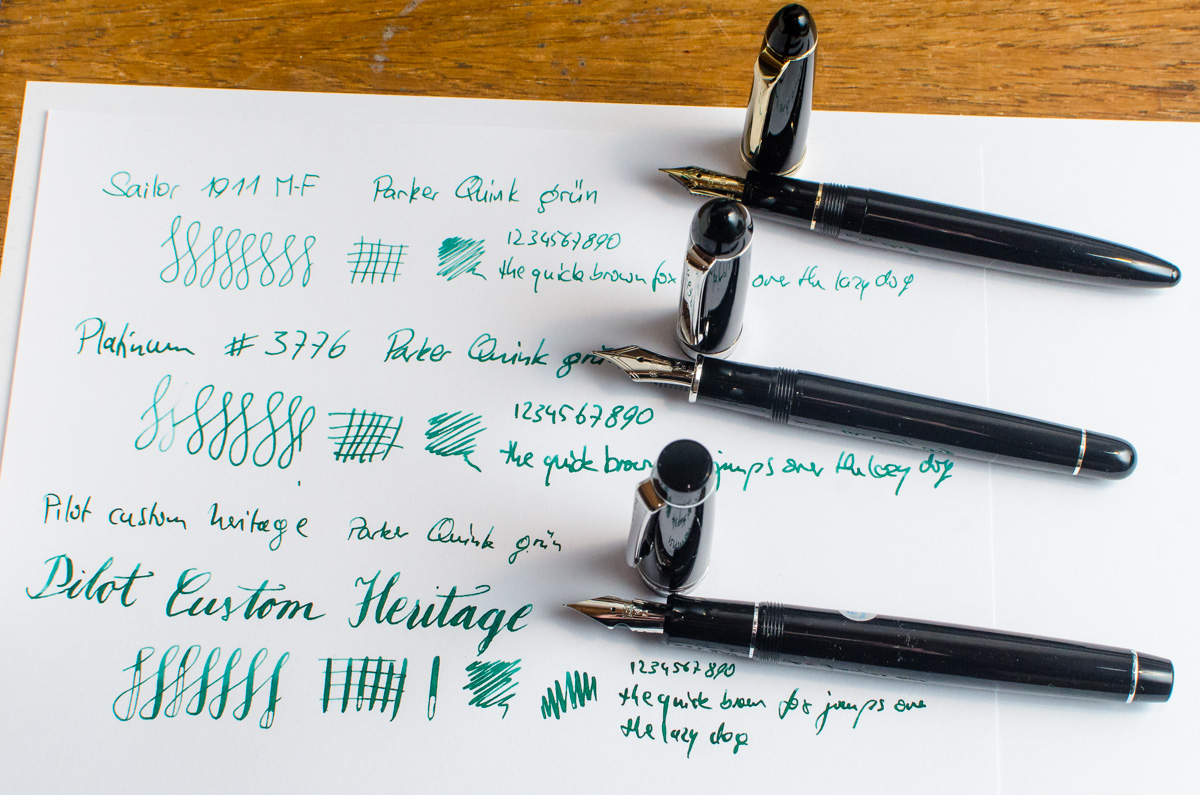 Sailor 1911 M-F Parker Quink grün
1234567890
the quick brown fox over the lazy dog
Platinum # 3776 Parker Quink grü
1234567890
the quick brown jumps over the lazy dog
Pilot custom heritage Parker Quink grün
Pilot Custom Heritage
1234567890
the quick brown fox jumps over
the lazy dog